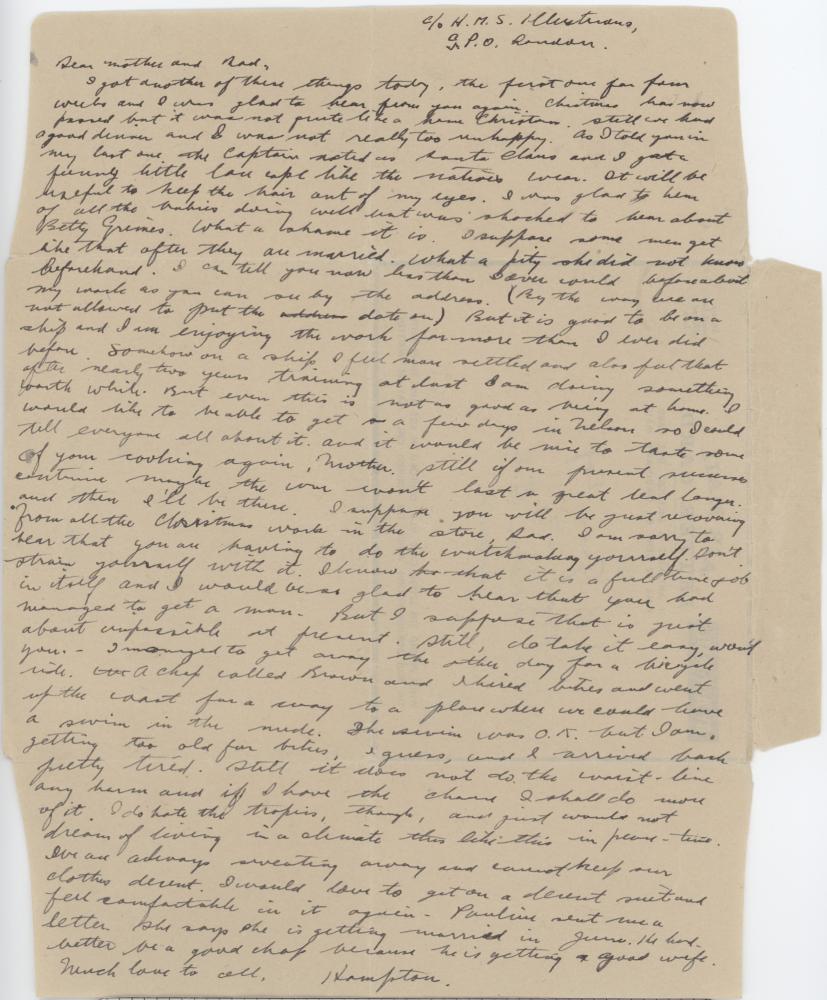 c/o H. M. S. Illustrious,
G. P. O. London.
Dear mother and Dad,
I got another of these things today, the first one for four
weeks and I was glad to hear from you again. Christmas has now
passed but it was not quite like a home Christmas. Still we had
a good dinner and I was not really too unhappy. As I told you in
my last one the Captain acted as Santa Claus and I got a
funny little cap like the natives wear. It will be
useful to keep the hair out of my eyes. I was glad to hear
of all the babies doing well but was shocked to hear about
Betty Grimes. What a shame it is. I suppose some men get
like that after they are married. What a pity she did not know
beforehand. I can tell you now less than I ever could before about
my work as you can see by the address. (By the way we are
not allowed to put the address date on) But it is good to be on a
ship and I am enjoying the work far more than I ever did
before. Somehow on a ship I feel more settled and also feel that
after nearly two years training at last I am doing something
worth while. But even this is not as good as being at home. I
would like to be able to get a few days in Nelson so I could
tell everyone all about it. And it would be nice to taste some
of your cooking again, Mother. Still if our present success
continue maybe the war won't last a great deal longer.
and then I'll be there. I suppose you will be just recovering
from all the Christmas work in the store, Dad. I am sorry to
hear that you are having to do the watchmaking yourself. Don't
strain yourself with it. I know that it is a full time job
in itself and I would be so glad to hear that you had
managed to get a man. But I suppose that is just
about impossible at present. Still, do take it easy, won't
you. - I managed to get away the other day for a bicycle
ride. A chap called Brown and I hired bikes and went
up the coast for a way to a place where we could have
a swim in the nude. The swim was O.K. but I am
getting too old for bikes, I guess, and I arrived back
pretty tired. Still it does not do the waist-line
any harm and if I have the chance I shall do more
of it. I do hate the tropics, though, and just would not
dream of living in a climate like this in peace-time.
We are always sweating away and cannot keep our
clothes decent. I would love to get on a decent suit and
feel comfortable in it again - Pauline sent me a
letter. She says she is getting married in June. He had
better be a good chap because he is getting a good wife.
Much love to all, Hampton.